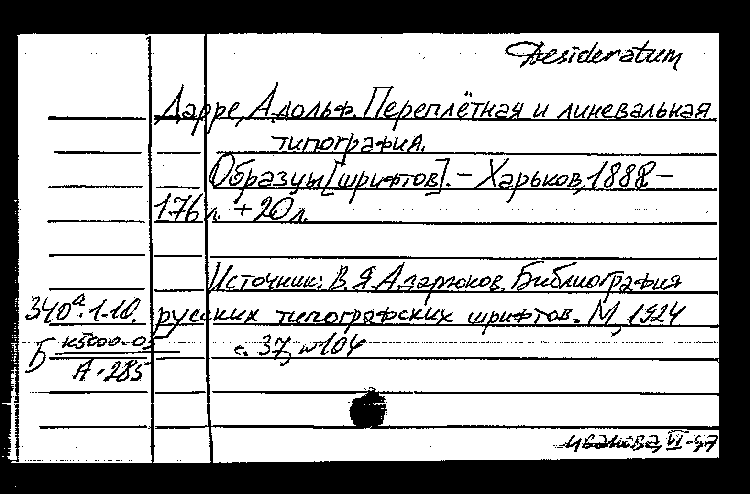 Desideratum
Дарре, Адольф. Переплётная и линевальная
типография.
Образцы [шрифтов]. – Харьков, 1888 –
176 л. + 20 л.
Источник: В. Я. Адарюков. Библиография
русских типографских шрифтов. М., 1924
с. 37, №104
340а.1-10.
Б К5000-05
А-285
Иванова, VI-97